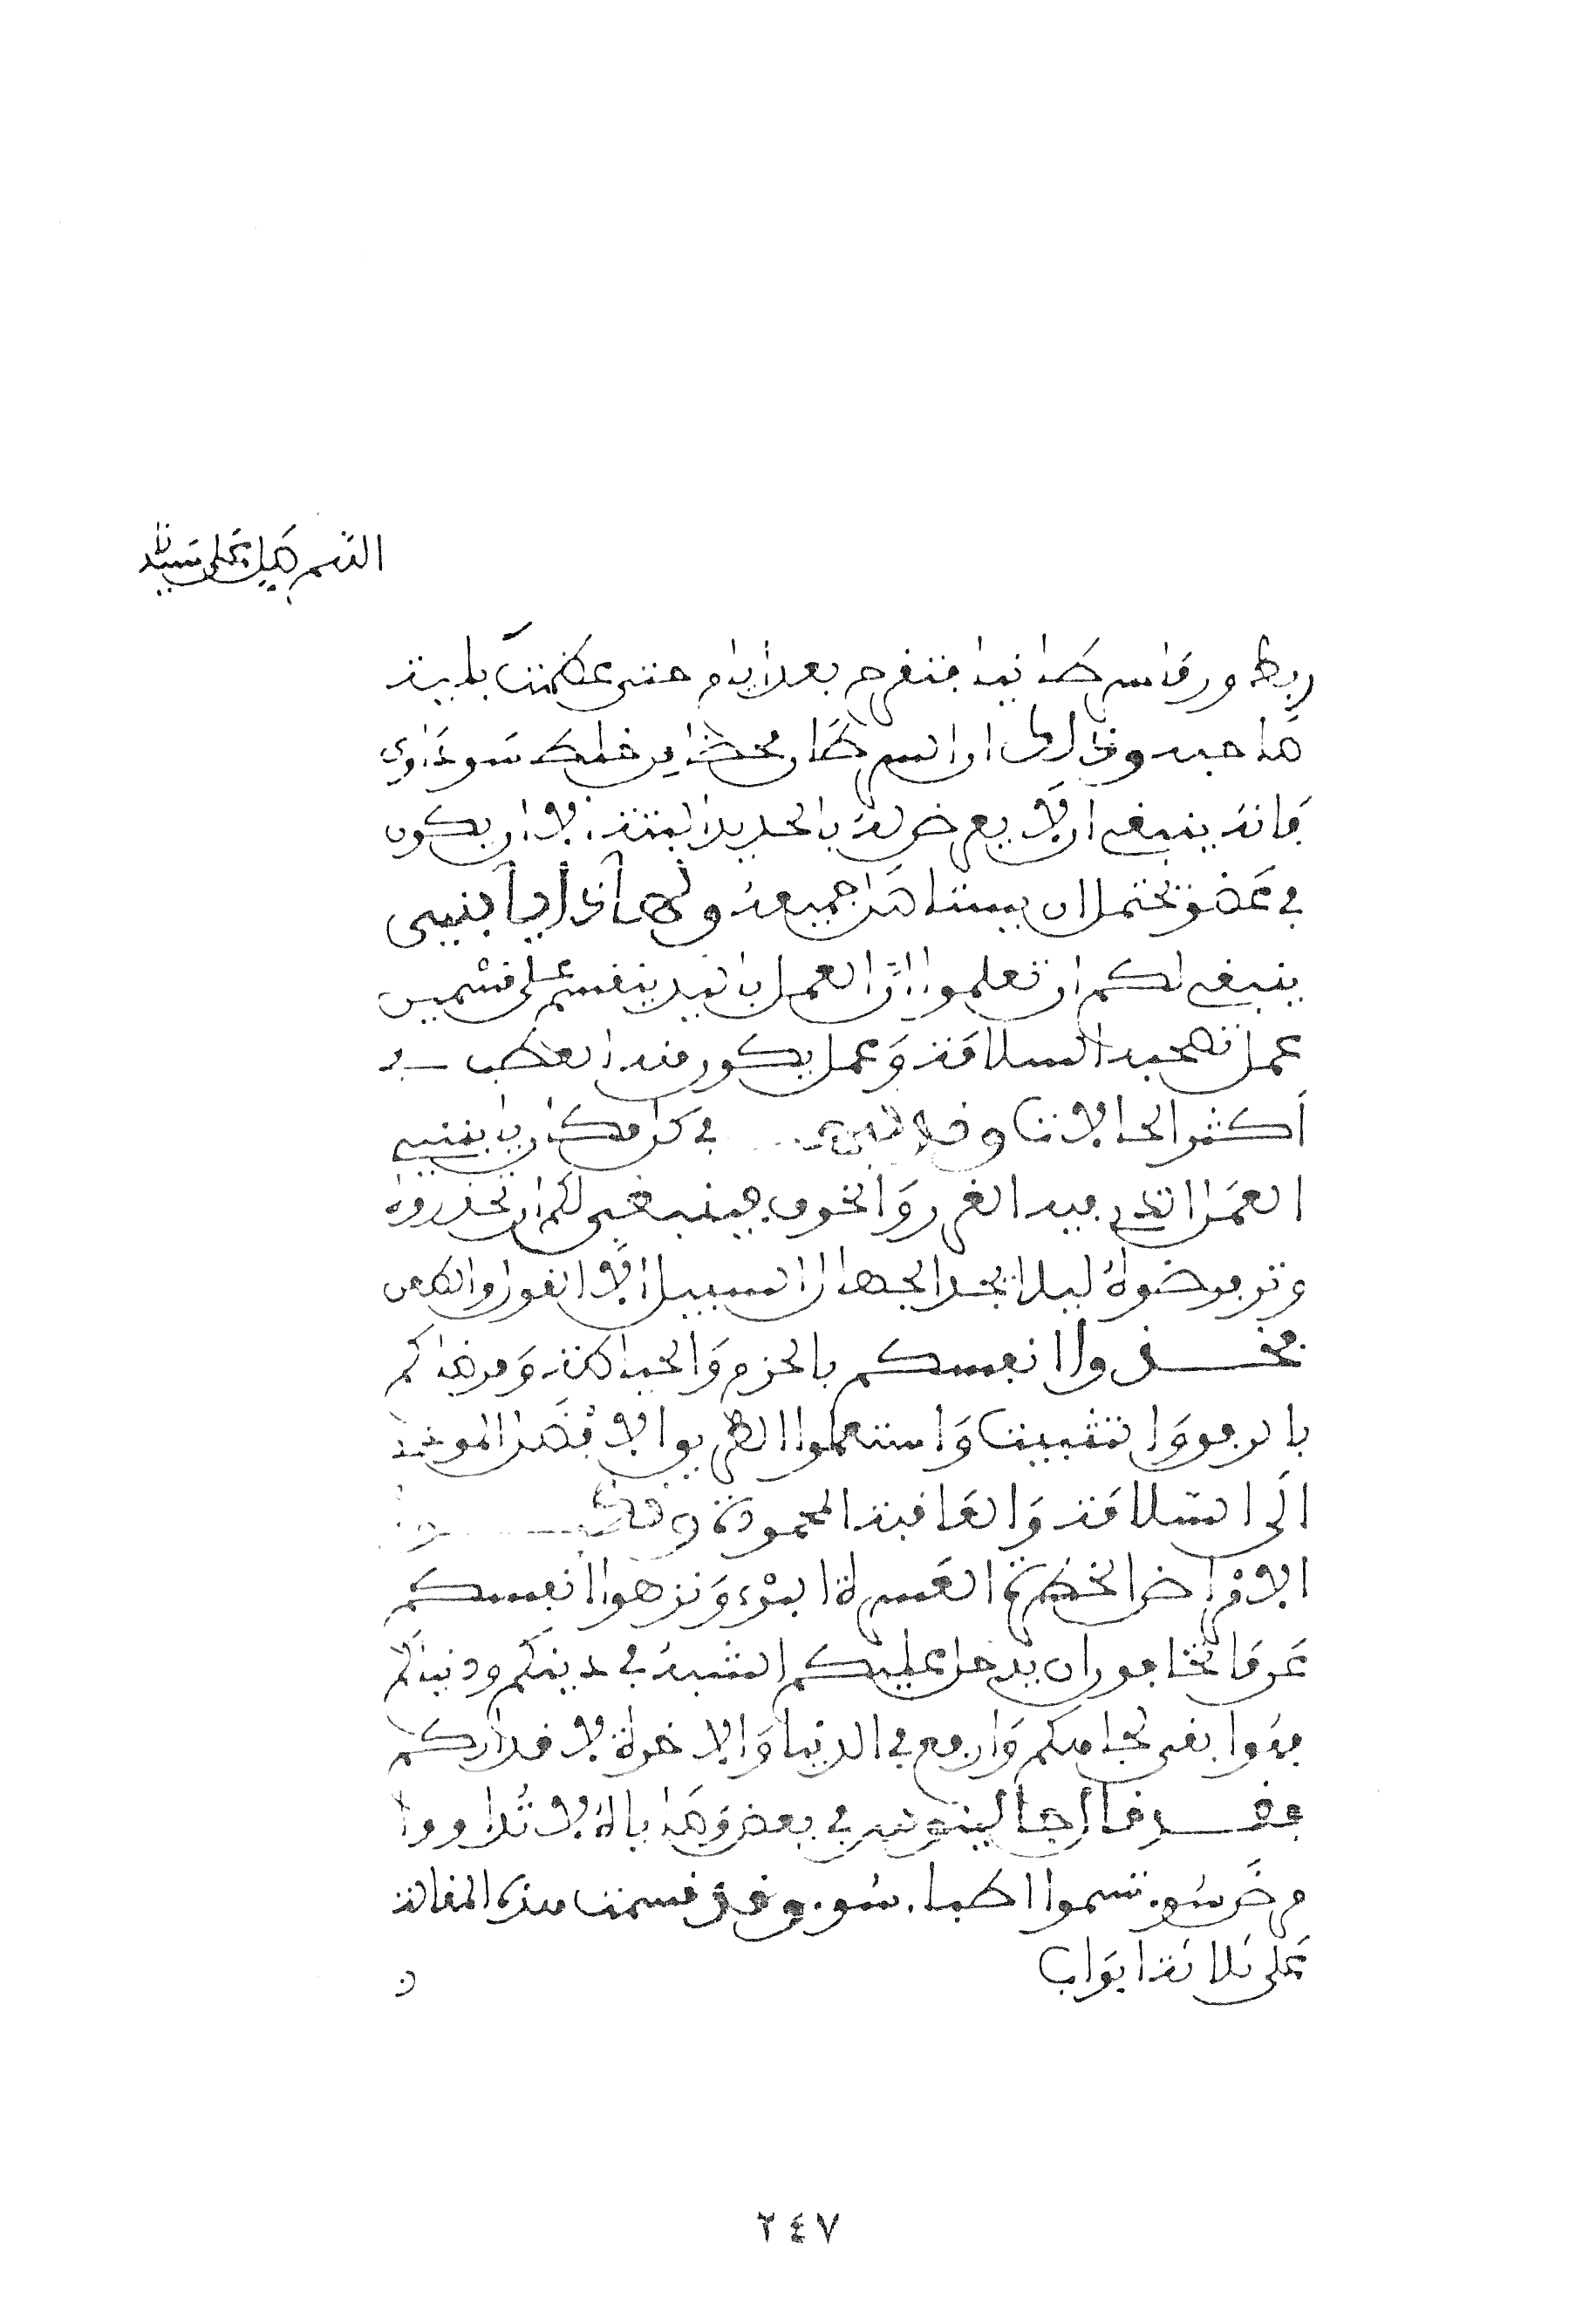 اللهم صل على سيدنا
ربط ورم سرطانيا فتقرح بعد أيام حتى عظمت بلية
صاحبه وذلك ان السرطان محضا من خلط سوداوي
فانه ينبغي ان لا يعرض له بالحديد البتة الا ان يكون
في عضو تحتمل ان يستاصل جميعه ولهاذا يا بني
ينبغي لكم ان تعلموا ان العمل باليد ينقسم على قسمين
عمل تصحبه السلامة وعمل يكون منه العطب في
أكثر الحالات وقد في كل مكان ياتي
العمل الذي فيه الغرر والخوف فينبغي لكم ان تحذروه
وترفضوه ليلا يجد الجهال السبيل الا القول والطعن
فخذوا انفسكم بالحزم والحياطة ومرضاكم
بالرفق والتثبيت واستعملوا الطريق الافضل الموءدية
الى السلامة والعاقبة المحمودة و
الامراض الخطرة العسرة البرء ونزهوا انفسكم
عن ما تخافون ان يدخل عليكم الشبه في دينكم ودنياكم
فهو ابقى لجاهكم وارفع في الدنيا والاخرة لاقداركم
فقد قال جالينوس في بعض وصاياه لا تداووا
مرض سو تسموا اطباء سو وقد قسمت هذه المقالة
على ثلاثة ابواب
ن
٢٤٧